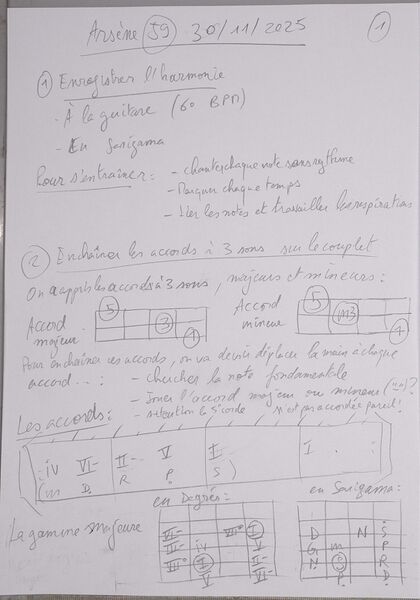 Arsène 59 30/11/2025 1
① Enregistrer l'harmonie
- À la guitare (60 BPM)
- En Sarigama
Pour s'entraîner : - chanter chaque note sans rythme
- Marquer chaque temps
- Lier les notes et travailler les respirations
② Enchaîner les accords à 3 sons sur le couplet
On a appris les accords à 3 sons, majeurs et mineurs :
Accord majeur 5 3 1
Accord mineur 5 m3 1
Pour enchaîner ces accords, on va devoir déplacer la main à chaque
accord... : - chercher la note fondamentale
- Jouer l'accord majeur ou mineur ("-")?
Les accords : - attention la 5 corde n'est pas accordée pareil !
iv VI- II- V I I
(m D R P S)
en Degrés : en Sarigama :
La gamme majeure
VII- VII° I D N S
III- iv G m P
VII° I II- N S R
V VI- P D